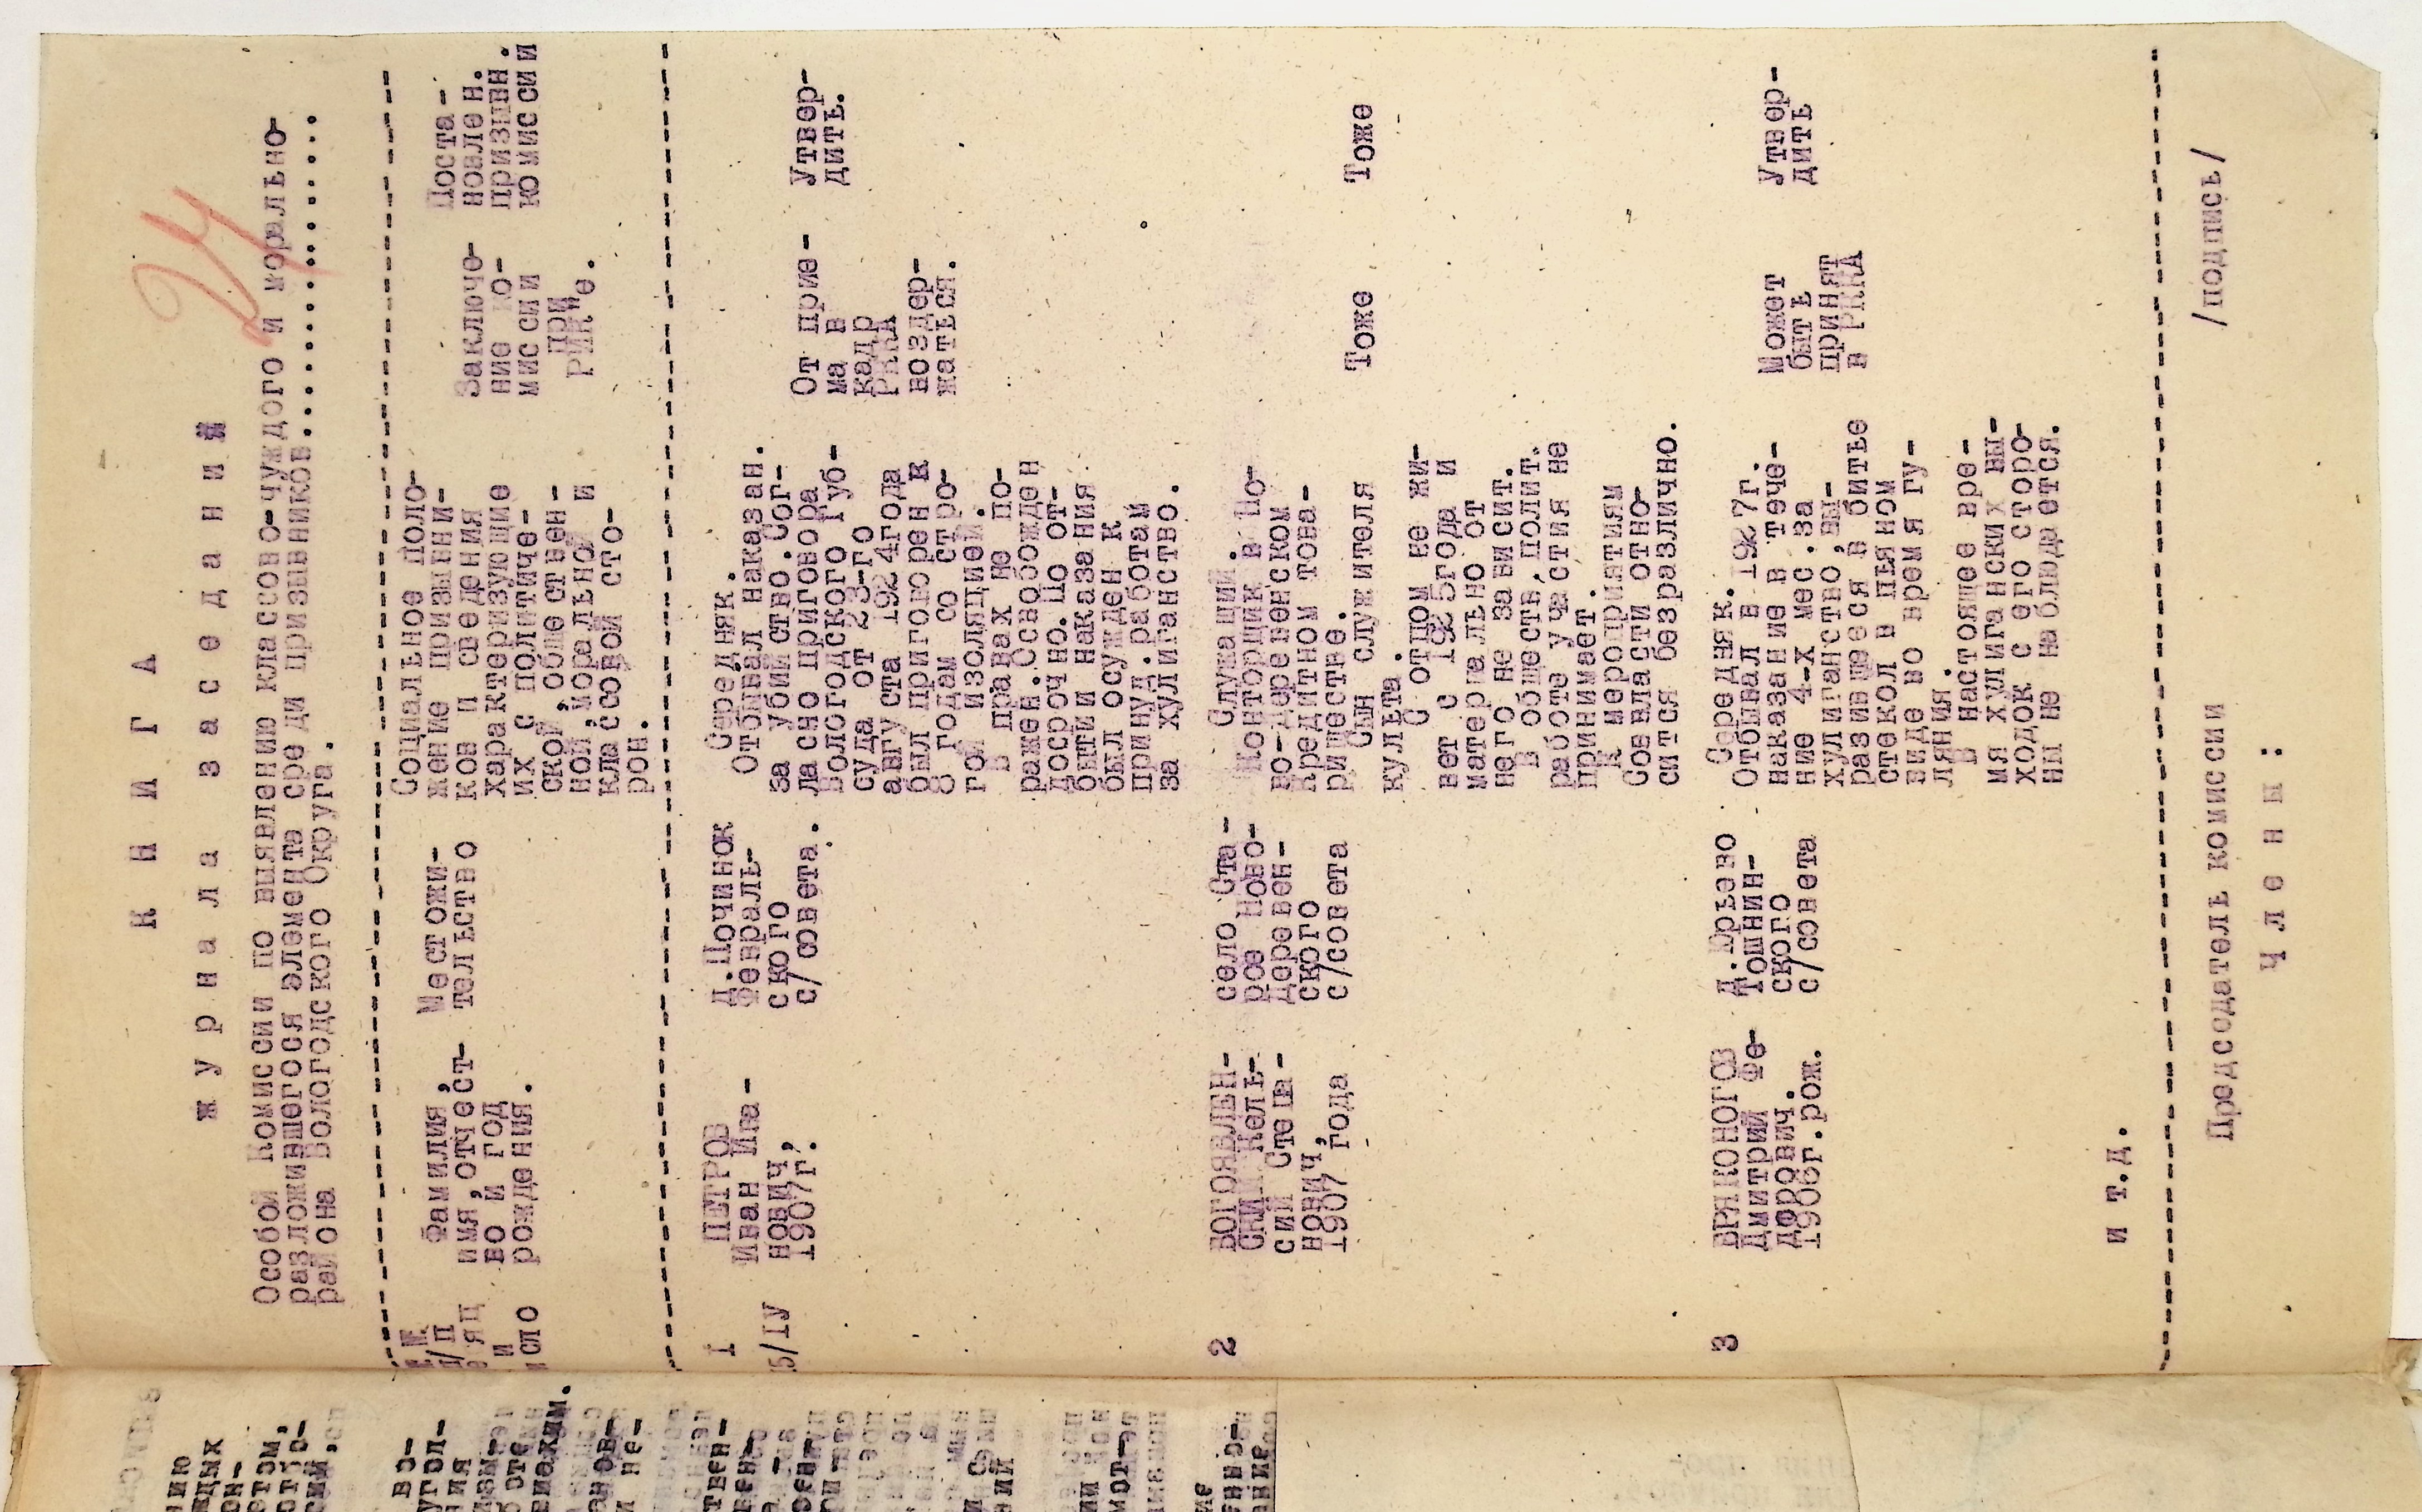 24
К Н И Г А
ж у р н а л а   з а с е д а н и й
Особой Комиссии по выявлению классово-чуждого и морально-
разложившегося элемента среди призывников..............
района Вологодского Округа.
№№
п/п
и
Фамилия,
имя,отчест-
во и год
рождения.
Местожи-
тельство
Социальное поло-
жение призывни-
ков и сведения
характеризующие
их с политиче-
ской,обществен-
ной,моральной и
классовой сто-
рон.
Заключе-
ние ко-
миссии
при
РИК"е.
Поста-
новлен.
призывн.
комиссии
1
ПЕТРОВ
Иван Ива-
нович,
1907г.
д.Починок
Февраль-
ского
с/совета.
Середняк.
Отбывал наказан.
за убийство.Сог-
ласно приговора
Вологодского Губ-
суда от 23-го
августа 1924года
был приговорен к
8 годам со стро-
гой изоляцией.
В правах не по-
ражен.Освобожден
досрочно.По от-
бытии наказания
был осужден к
принуд.работам
за хулиганство.
От прие-
ма в
кадр
РККА
воздер-
жаться.
Утвер-
дить.
2
БОГОЯВЛЕН-
СКИЙ Кель-
сий Степа-
нович,
1907 года
село Ста-
рое Ново-
Деревен-
ского
с/совета
Служащий.
Конторщик в Но-
во-Деревенском
Кредитном това-
риществе.
Сын служителя
культа.
С отцом не жи-
вет с 1925года и
материально от
него не зависит.
В обществ.полит.
работе участия не
принимает.
К мероприятиям
Соввласти отно-
сится безразлично.
Тоже
Тоже
3
БРЯКОНОГОВ
Дмитрий Фе-
дорович.
1906г.рож.
д.Юрьево
Тошнин-
ского
с/совета
Середняк.
Отбывал в 1927г.
наказание в тече-
ние 4-х мес.за
хулиганство,вы-
разившееся в битье
стекол в пьяном
виде во время гу-
ляния.
В настоящее вре-
мя хулиганских вы-
ходок с его сторо-
ны не наблюдается.
Может
быть
принят
в РККА
Утвер-
дить
и т.д.
Председатель комиссии   /подпись/
Ч л е н ы :